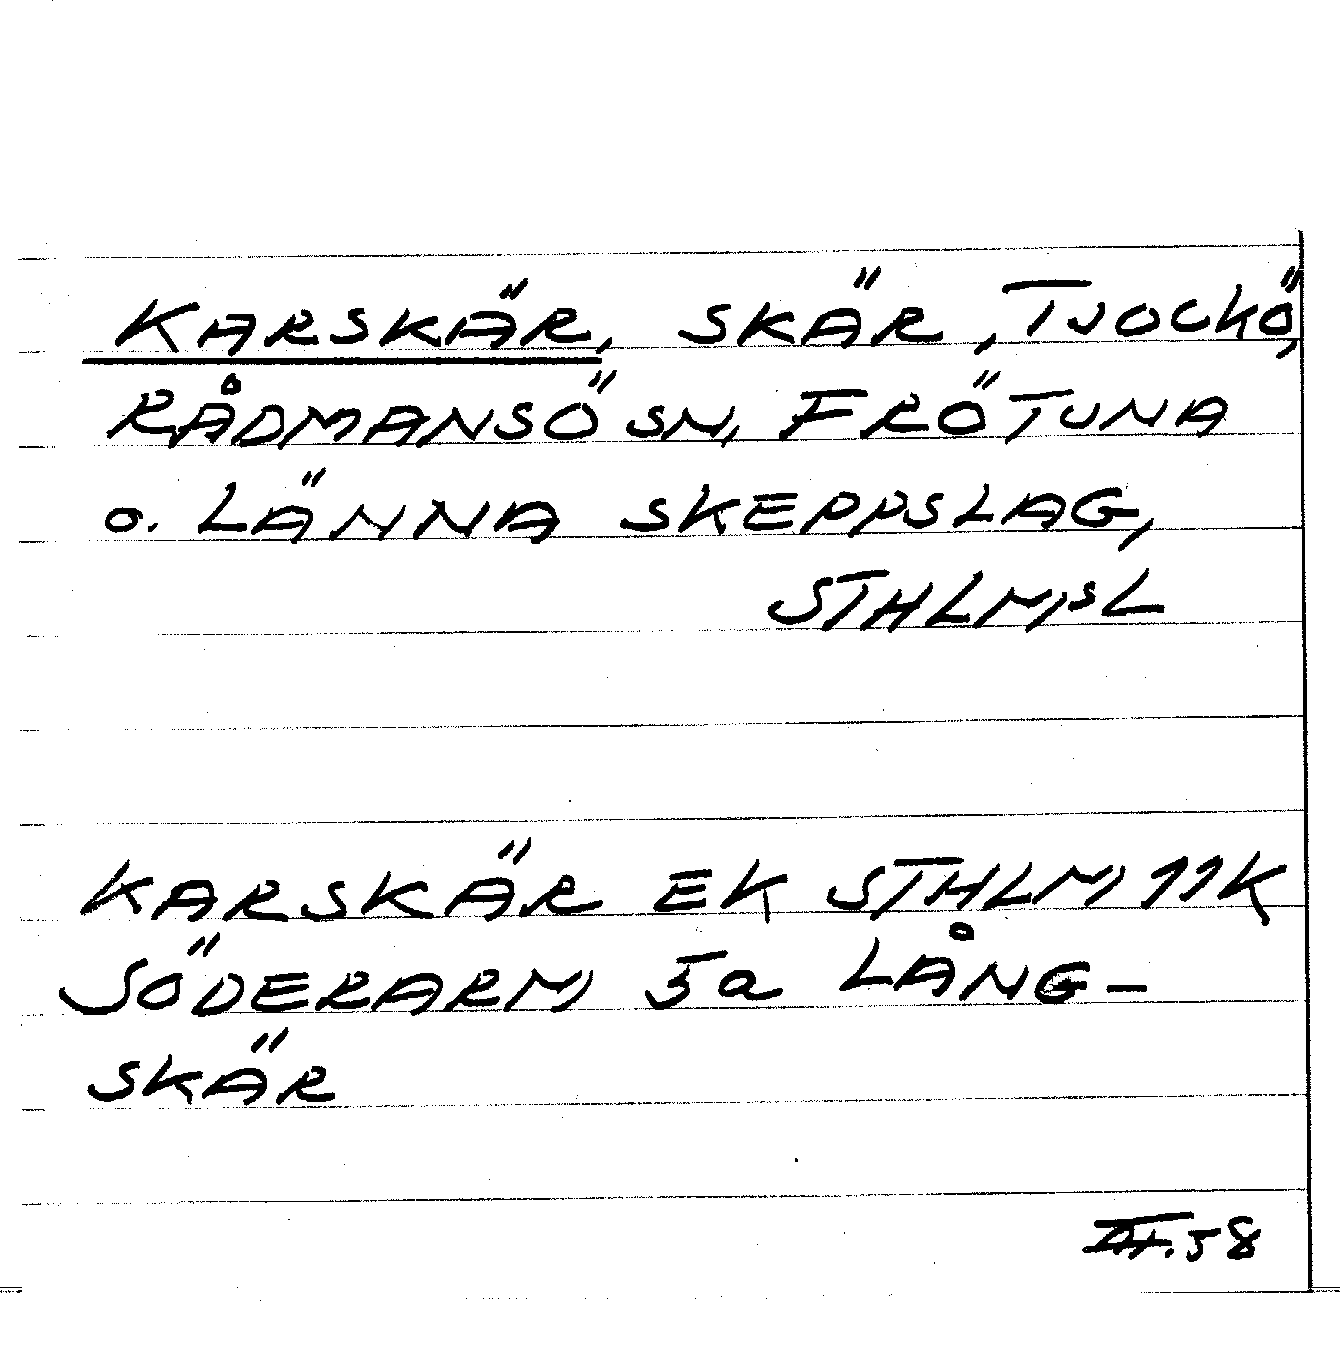 KARSKÄR, SKÄR, TJOCKÖ,
RÅDMANSÖ SN, FRÖTUNA
o. LÄNNA SKEPPSLAG,
STHLMSL
KARSKÄR EK STHLM 11K
SÖDERARM 5a LÅNG-
SKÄR
.58